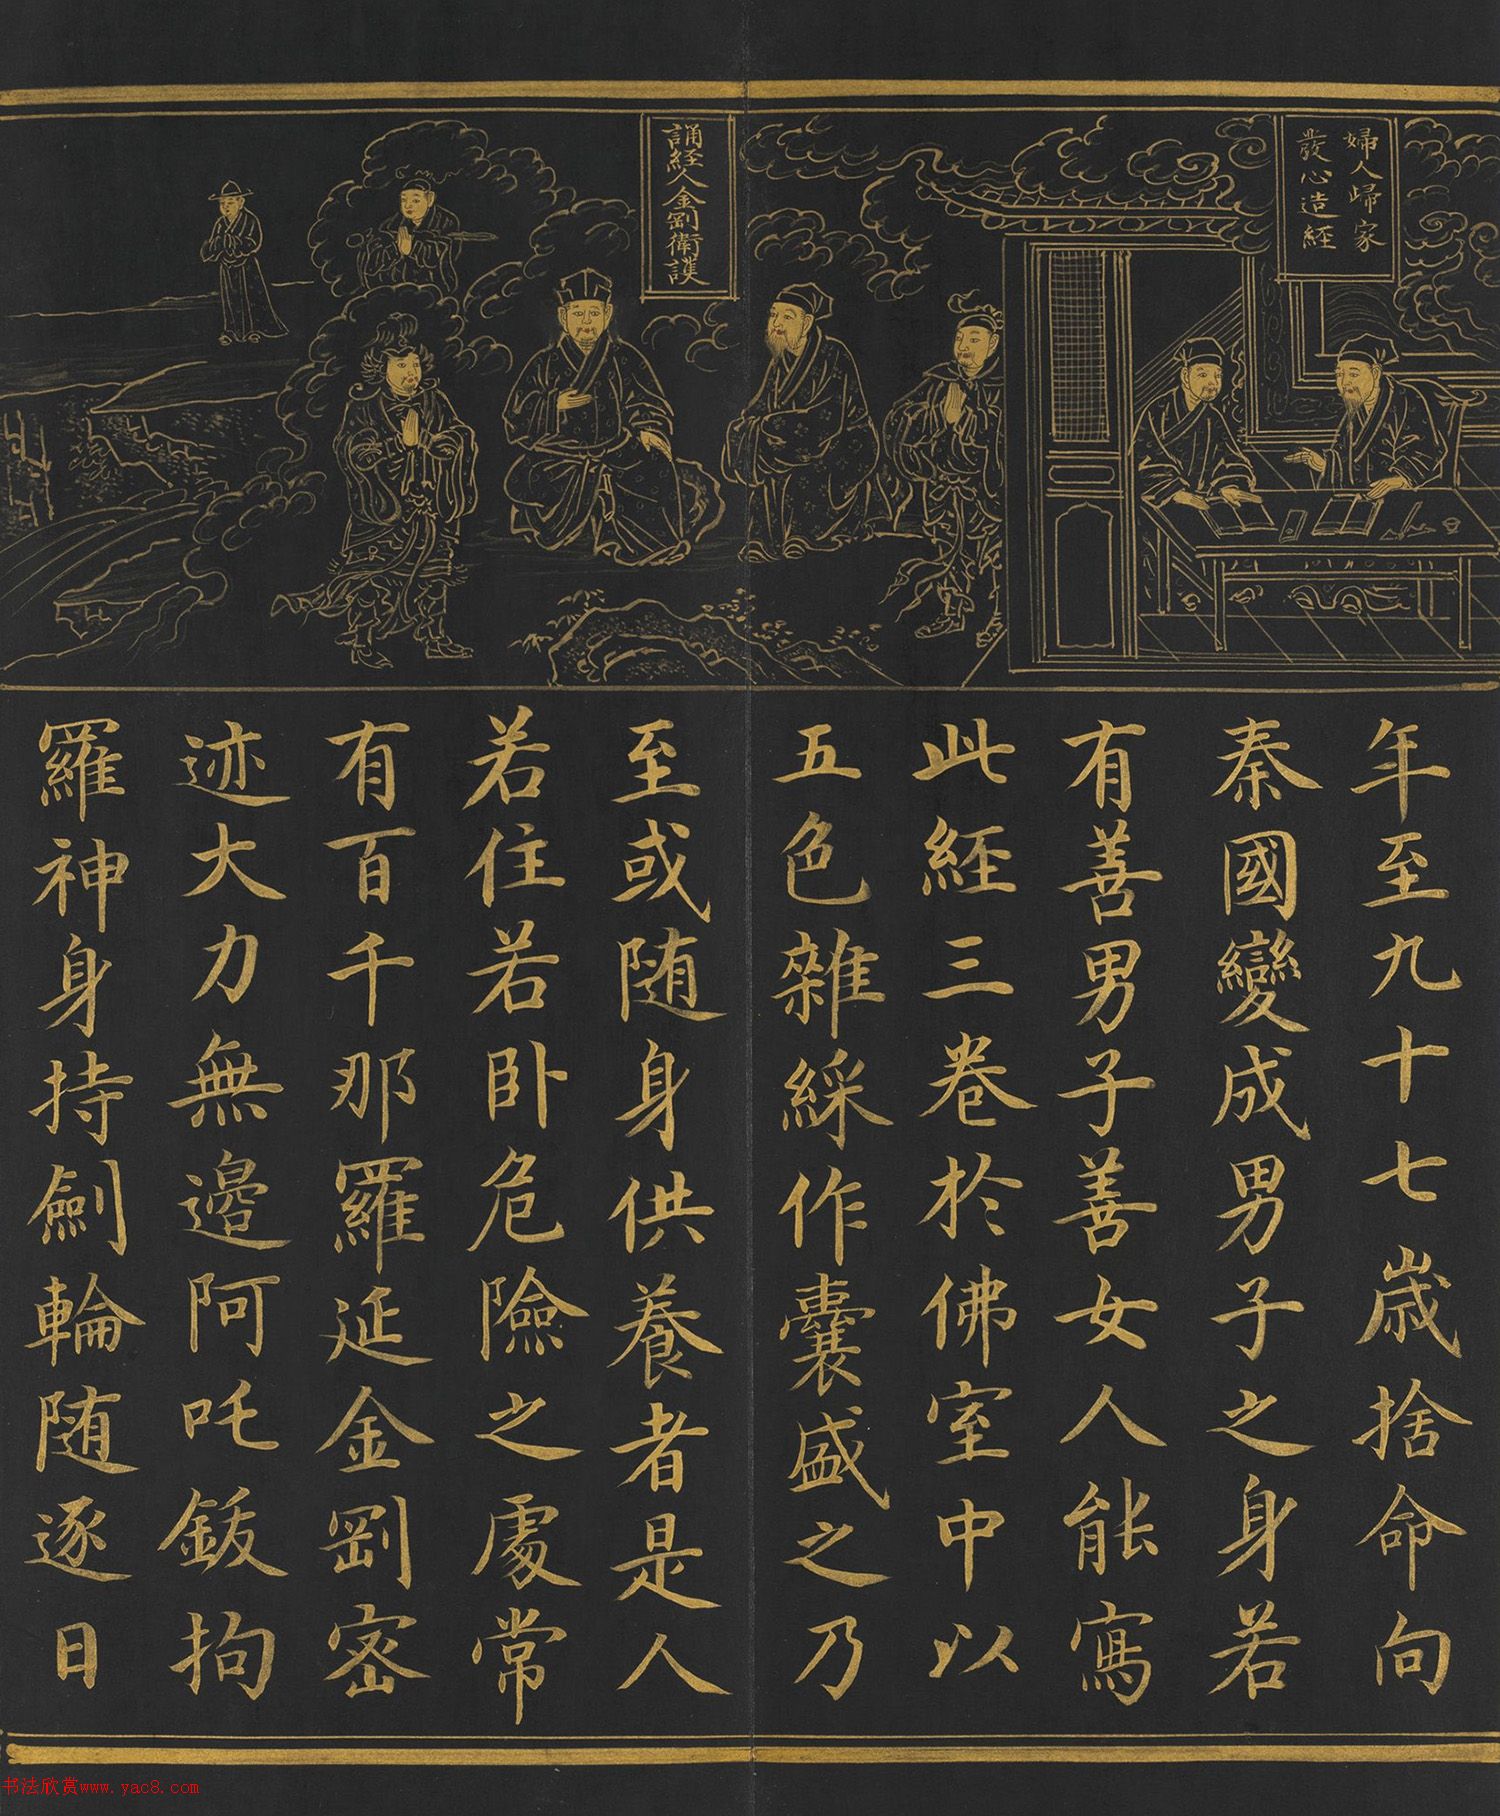 婦人歸家
發心造経
誦経人金剛衛護
年至九十七歲捨命向
秦國變成男子之身若
有善男子善女人能寫
此經三卷於佛室中以
五色雜綵作囊盛之乃
至或随身供養者是人
若住若卧危險之處常
有百千那羅延金剛密
迹大力無邊阿吒鈸拘
羅神身持劍輪随逐日
书法欣赏www.yac8.com